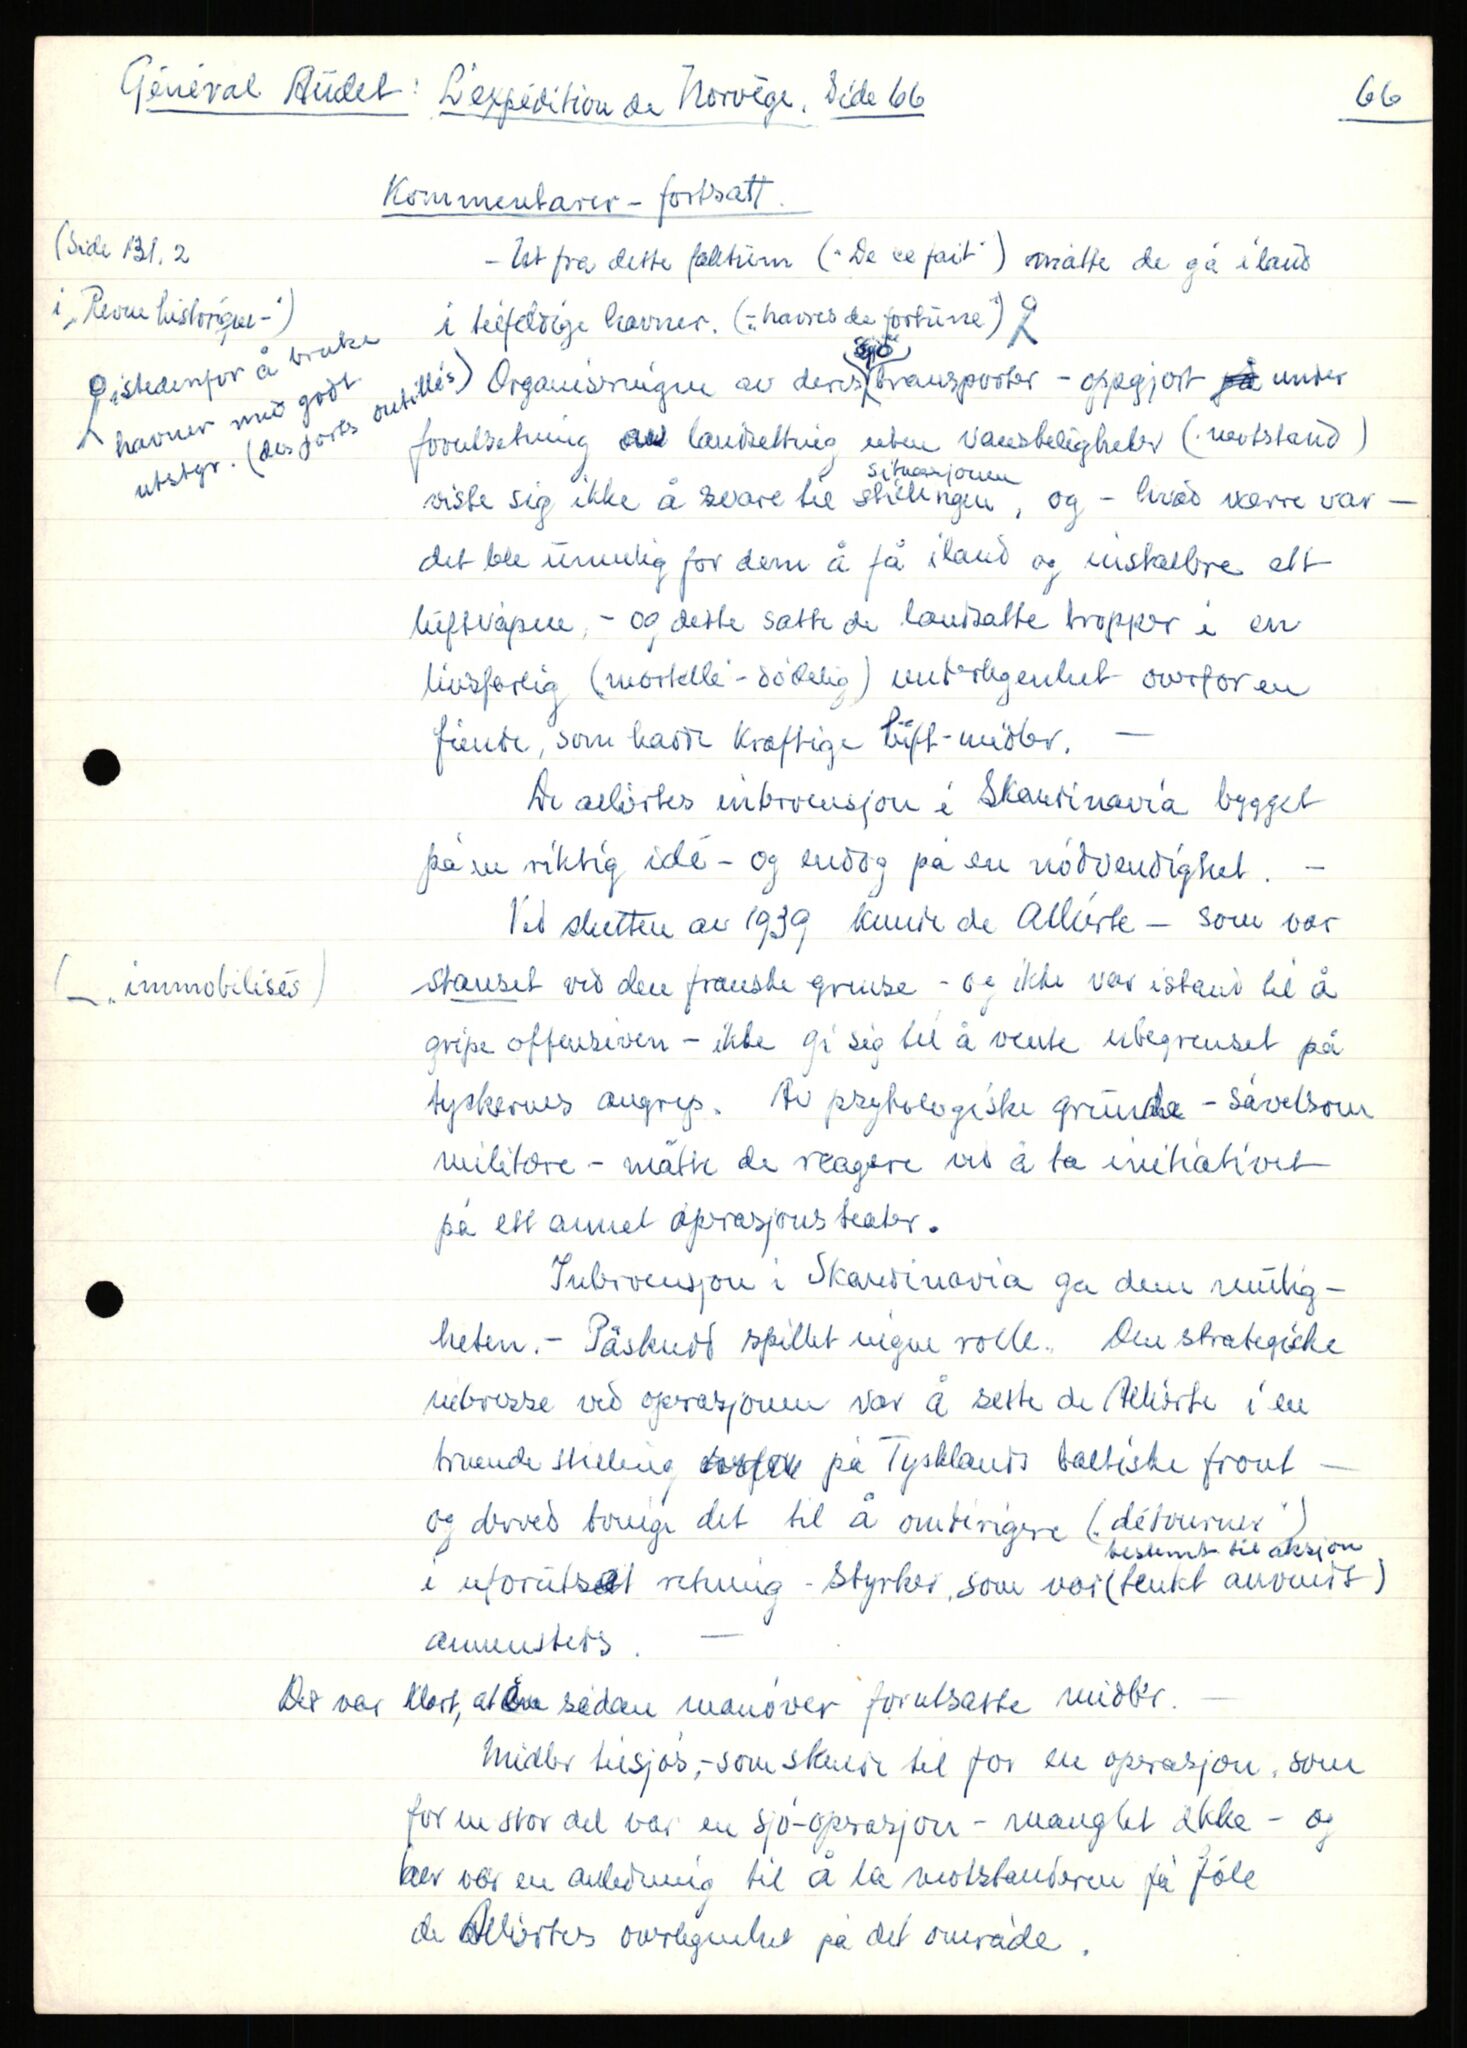 Général Audet: L'expédition de Norvège. Side 66
66
Kommentarer - fortsatt.
(Side 131. 2
i „Revue historique -")
- Ut fra dette faktum („De ce fait") måtte de gå iland
i tilfeldige havner. („havres de fortune")
istedenfor å bruke
havner med godt
utstyr. (des ports outillés)
(sjø)
Organiseringen av deres transporter - oppgjort på under
forutsetning av landsetting uten vanskeligheter (motstand)
situasjonen
viste sig ikke å svare til stillingen, og - hvad værre var -
det ble umulig for dem å få iland og installere alt
luftvåpen, - og dette satte de landsatte tropper i en
livsfarlig (mortelle - dödelig) underlegenhet overfor en
fiende, som hadde kraftige luft-midler. -
De alliertes intervensjon i Skandinavia bygget
på en riktig idé - og endog på en nödvendighet. -
Ved slutten av 1939 kunde de Allierte - som var
(- „immobilisés)
stanset ved den franske grense - og ikke var istand til å
gripe offensiven - ikke gi sig til å vente ubegrenset på
tyskernes angrep. Av psykologiske grunde - såvelsom
militære - måtte de reagere ved å ta initiativet
på ett annet operasjonsteater.
Intervensjon i Skandinavia ga dem mulig-
heten. - Påskudd spillet ingen rolle. Den strategiske
interesse ved operasjonen var å sette de Allierte i en
truende stilling på Tysklands baltiske front -
og derved tvinge det til å omdirigere („détourner")
bestemt til aksjon
i uforutsett retning - styrker, som var (tenkt anvendt)
annensteds. -
Det var klart, at en sådan manöver forutsatte midler. -
Midler tilsjös, - som skulde til for en operasjon, som
for en stor del var en sjö-operasjon - manglet ikke - og
her var en anledning til å la motstanderen få föle
de Alliertes overlegenhet på det område.